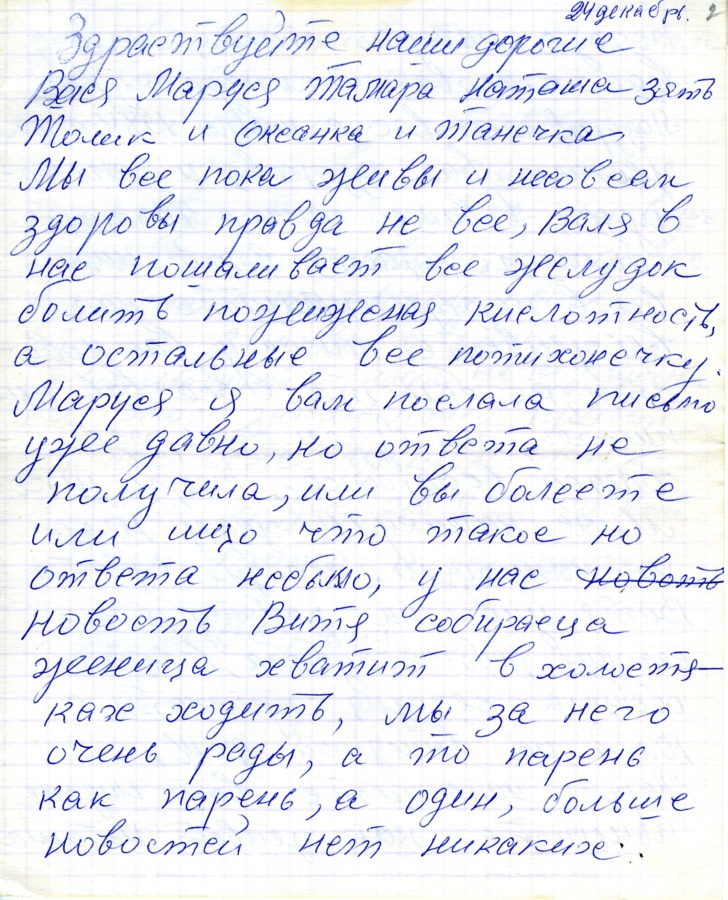 24 декабрь. 2
Здраствуйте наши дорогие
Вася Маруся Тамара Наташа зять
Толик и Оксанка и Танечка
Мы все пока живы и несовсем
здоровы правда не все, Валя в
нас пошаливает все желудок
болить кислотность,
а остальные все потихонечку.
Маруся я вам послала письмо
уже давно, но ответа не
получила, или вы болеете
или що что такое но
ответа небыло, у нас новость
новость Витя собираеца
женица хватит в холостя-
ках ходить, мы за него
очень рады, а то парень
как парень, а один, больше
новостей нет никаких.